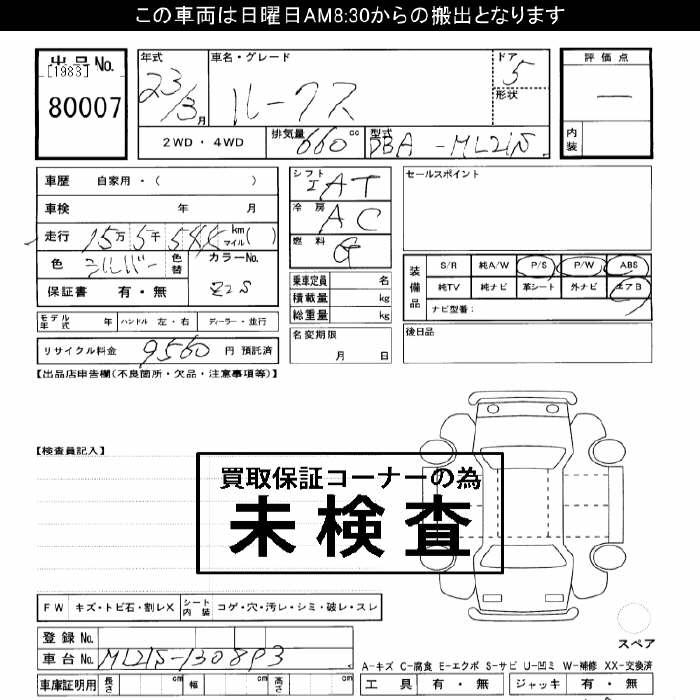 この車両は日曜日AM8:30からの搬出となります
出品No.
[1983]
80007
年式 車名・グレード ドア
23/3月 ルークス 5
形状
2WD・4WD 排気量 660cc 型式 DBA-ML21S
評価点
—
内装
車歴 自家用・( )
車検 年 月
走行 15万5千 km マイル( )
色 シルバー 色替 カラーNo.
保証書 有・無 Z2S
シフト IAT
冷房 AC
燃料 G
乗車定員 名
積載量 kg
総重量 kg
名変期限
月 日
セールスポイント
装備品
S/R 純A/W P/S P/W ABS
純TV 純ナビ 革シート 外ナビ エアB
ナビ型番:
後日品
モデル年式 年 ハンドル 左・右 ディーラー・並行
リサイクル料金 9560 円 預託済
【出品店申告欄(不良箇所・欠品・注意事項等)】
【検査員記入】
買取保証コーナーの為
未検査
FW キズ・トビ石・割レX シート内装 コゲ・穴・汚レ・シミ・破レ・スレ
スペア
登録No.
車台No. ML21S-130893
A-キズ C-腐食 E-エクボ S-サビ U-凹ミ W-補修 XX-交換済
車庫証明用 長さ cm 幅 cm 高さ cm
工具 有・無 ジャッキ 有・無